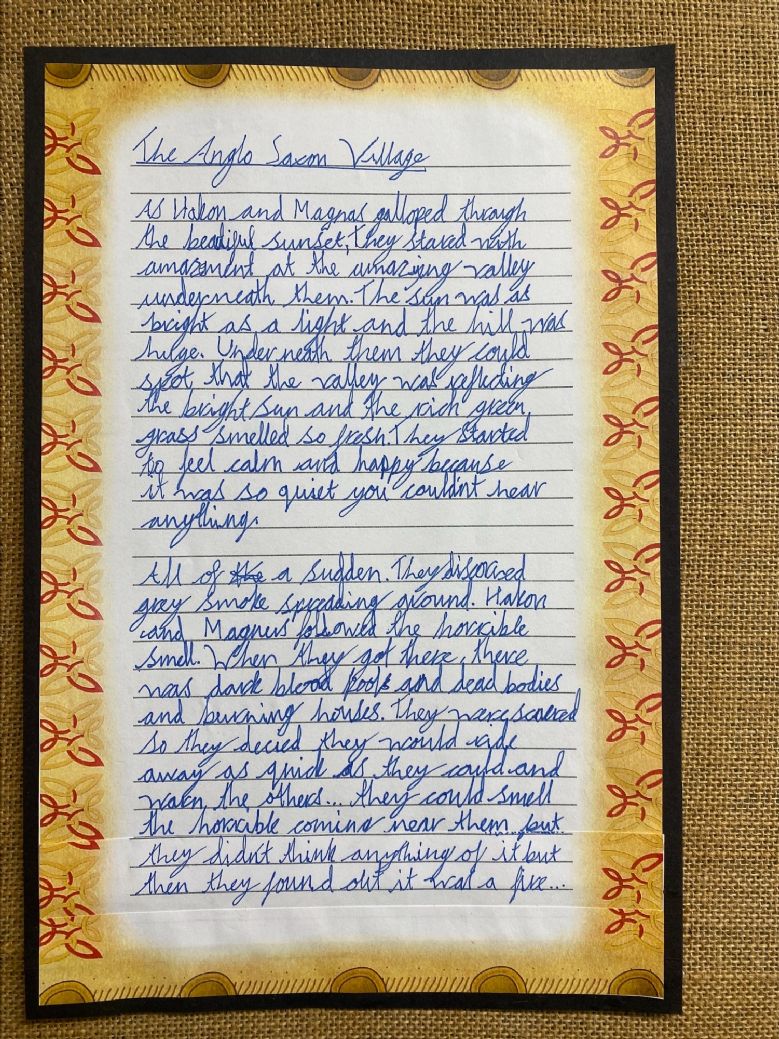 The Anglo Saxon Village
As Hakon and Magnas galloped through
the beadiful sunset, They stared with
amazment at the amazijng valley
underneath them. The sun was as
bright as a light and the hill was
huge. Underneath them they could
spot that the valley was reflecding
the bright sun and the rich green
grass smelled so fresh. They started
to feel calm and happy because
it was so quiet you couldn't hear
anything.
All of a sudden. They discoved
grey smoke spreading ground. Hakon
and Magnus followed the horrible
smell. When they got there, there
was dark blood pools and dead bodies
and burning houses. They were scared
so they decied they would ride
away as quick as they could and
warn the others... they could smell
the horrible coming near them... but
they didn't think anything of it but
then they found out it was a fire...